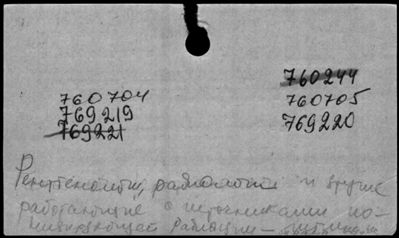 760244
760704 760705
769219 769220
769221
Рентгенологи, радиологи и другие
работающие с источниками ио-
низирующей радиации -